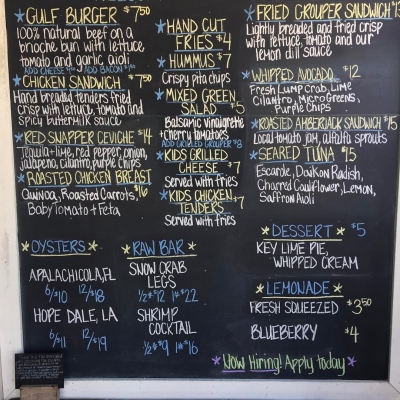 GULF BURGER $7.50
100% natural beef on a
brioche bun with lettuce,
tomato and garlic aioli
CHICKEN SANDWICH $7.50
Hand breaded tenders fried
crisp with lettuce, tomato and
spicy buttermilk sauce
RED SNAPPER CEVICHE $14
Tequila + lime, red pepper, onion,
jalapeno, cilantro, purple chips
ROASTED CHICKEN BREAST
Quinoa, Roasted Carrots, $16
Baby Tomato + Feta
HAND CUT
FRIES $4
HUMMUS $7
Crispy pita chips
MIXED GREEN
SALAD $5
Balsamic vinaigrette
+ cherry tomatoes
ADD GRILLED GROUPER $8
KIDS GRILLED
CHEESE $7
Served with fries
KIDS CHICKEN
TENDERS $7
Served with fries
FRIED GROUPER SANDWICH
Lightly breaded and fried crisp
with lettuce, tomato and our
lemon dill sauce
WHIPPED AVOCADO $12
Fresh Lump Crab, Lime
Cilantro, MicroGreens,
Purple Chips
ROASTED AMBERJACK SANDWICH $15
Local tomato jam, alfalfa sprouts
SEARED TUNA $15
Escarole, Daikon Radish,
Charred Cauliflower, Lemon,
Saffron Aioli
OYSTERS
APALACHICOLA, FL
6/$10 12/$18
HOPE DALE, LA
6/$11 12/$19
RAW BAR
SNOW CRAB
LEGS
1/2# $12 1# $22
SHRIMP
COCKTAIL
1/2# $9 1# $16
DESSERT $5
KEY LIME PIE,
WHIPPED CREAM
LEMONADE
FRESH SQUEEZED $3.50
BLUEBERRY $4
Now Hiring! Apply today